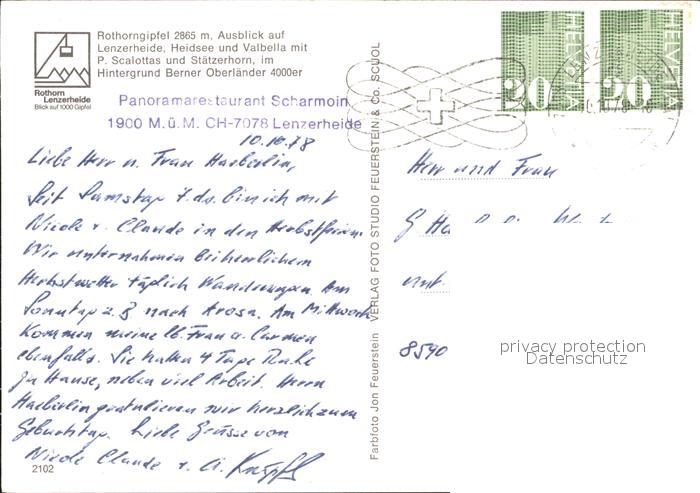 Rothorngipfel 2865 m, Ausblick auf
Lenzerheide, Heidsee und Valbella mit
P. Scalottas und Stätzerhorn, im
Hintergrund Berner Oberländer 4000er
Rothorn
Lenzerheide
Blick auf 1000 Gipfel
Panoramarestaurant Scharmoin
1900 M.ü.M. CH-7078 Lenzerheide
10.10.78
Liebe Herr u. Frau Haeberlin,
Seit Samstag 7. ds. bin ich mit
Nicole u. Claude in den Herbstferien.
Wir unternahmen bei herrlichem
Herbstwetter täglich Wanderungen. Am
Sonntag z.B nach Arosa. Am Mittwoch
kommen meine lb. Frau u. Carmen
ebenfalls. Sie hatten 4 Tage Ruhe
zu Hause, neben viel Arbeit. Herrn
Haeberlin gratulieren wir herzlich zum
Geburtstag. Liebe Grüsse von
Nicole Claude u. A.
2102
Farbfoto Jon Feuerstein VERLAG FOTO STUDIO FEUERSTEIN & Co. SCUOL
HELVETIA
20
HELVETIA
20
Herr und Frau
8590
privacy protection
Datenschutz